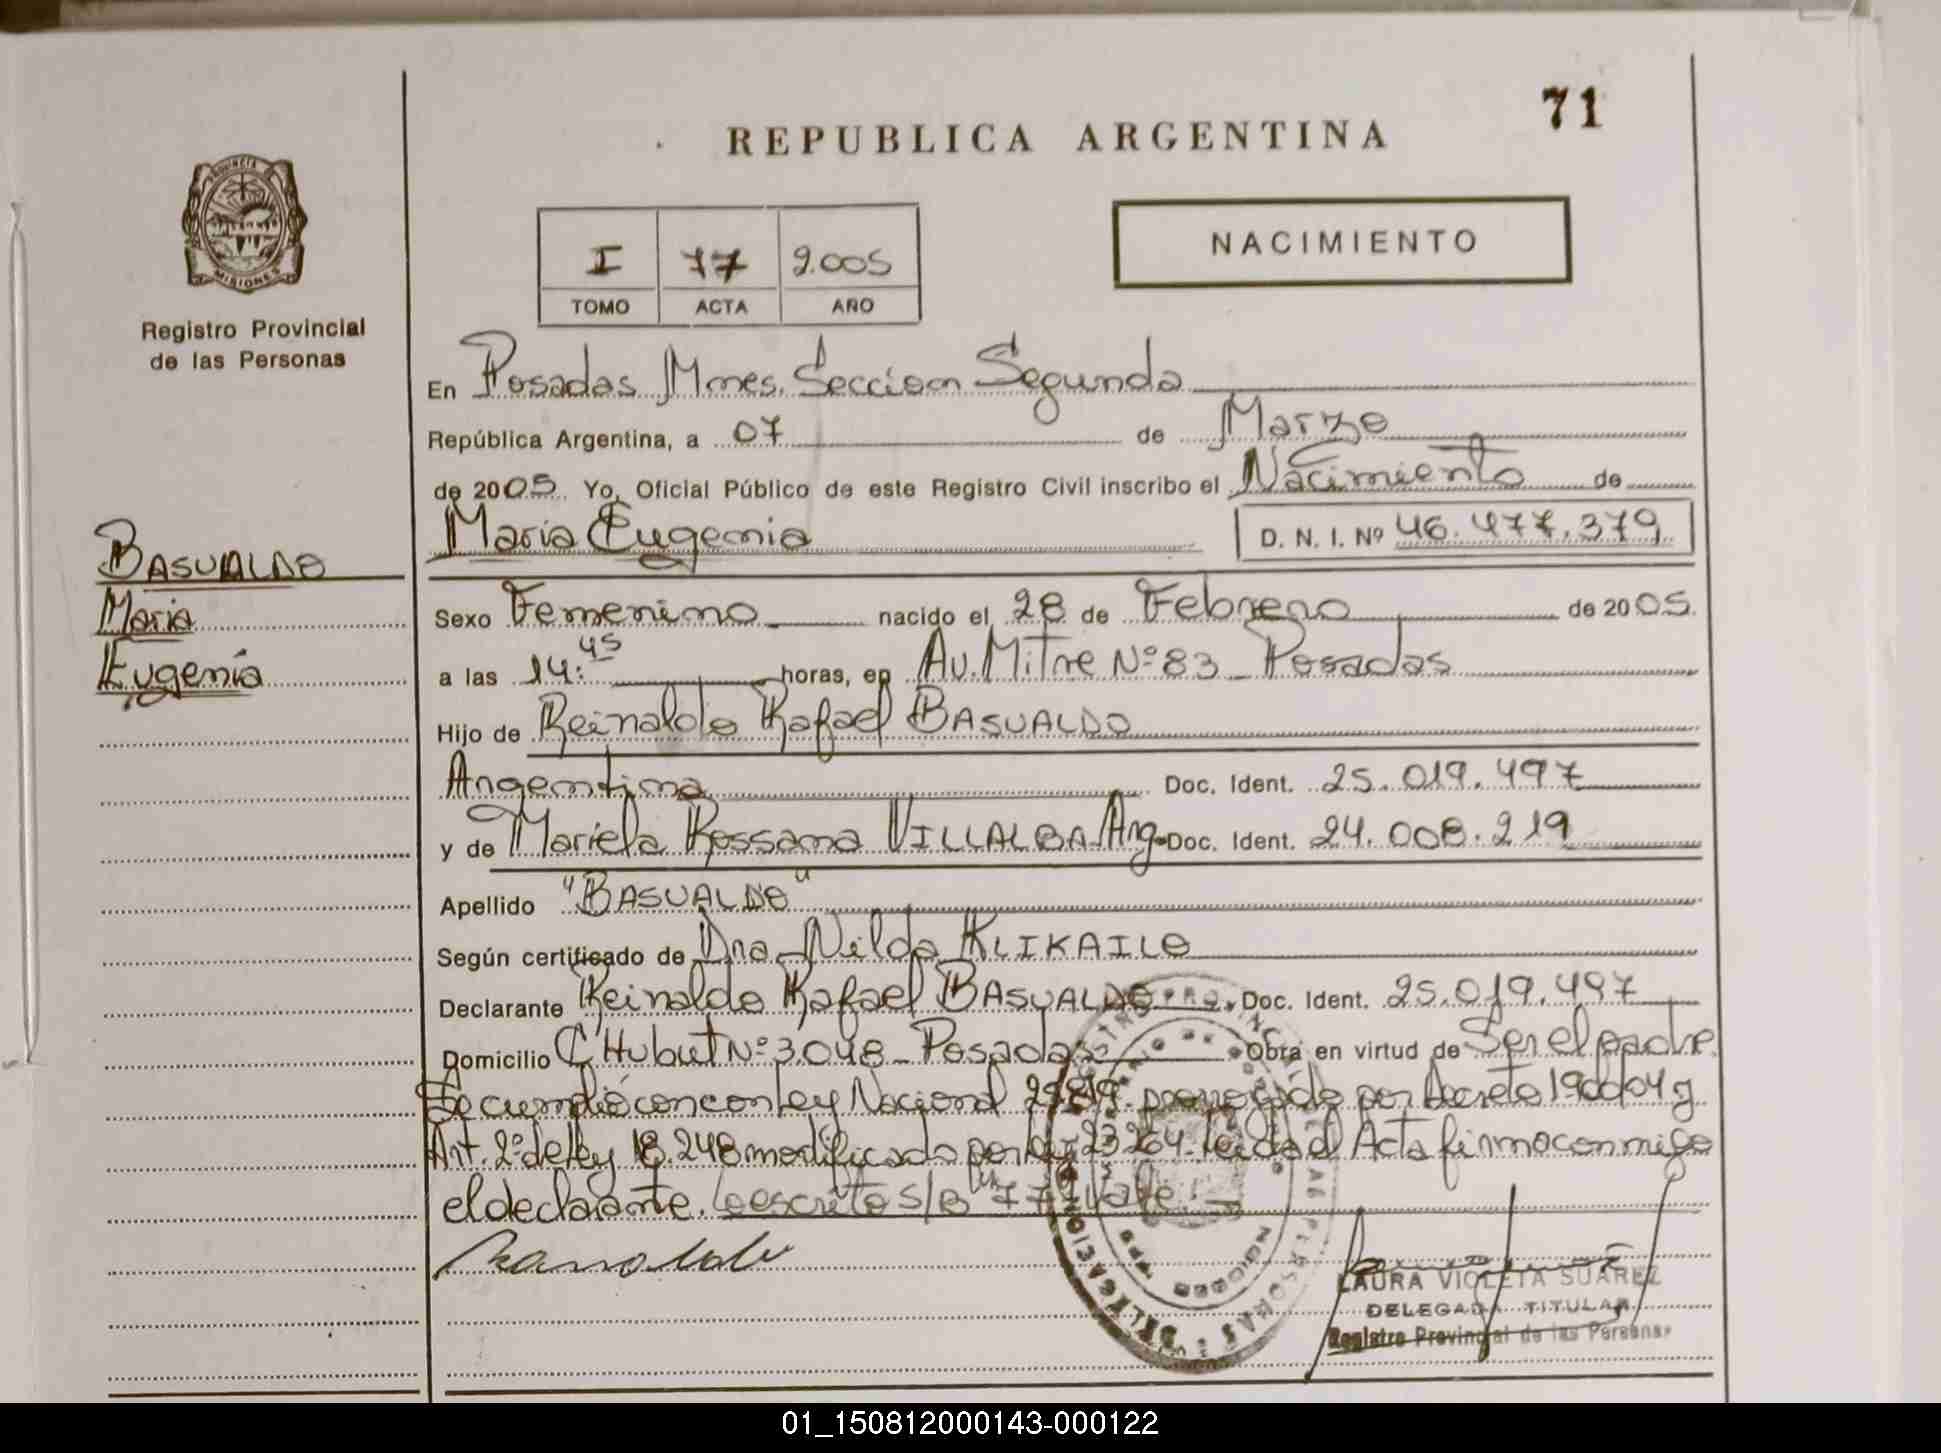 71
REPUBLICA ARGENTINA
PROVINCIA DE MISIONES
Registro Provincial
de las Personas
I 77 2.005
TOMO ACTA AÑO
NACIMIENTO
En Posadas Mnes. Seccion Segunda
República Argentina, a 07 de Marzo
de 2005 Yo, Oficial Público de este Registro Civil inscribo el Nacimiento de
Maria Eugenia D. N. I. Nº 46.477.379
BASUALDO
Maria
Eugenia
Sexo Femenino nacido el 28 de Febrero de 2005
a las 14:45 horas, en Av. Mitre Nº 83 Posadas
Hijo de Reinaldo Rafael BASUALDO
Argentina Doc. Ident. 25.019.497
y de Mariela Rossana VILLALBA Arg. Doc. Ident. 24.008.219
Apellido "BASUALDO"
Según certificado de Dra. Nilda KLIKAILO
Declarante Reinaldo Rafael BASUALDO Doc. Ident. 25.019.497
Domicilio CHubut Nº 3.048 - Posadas Obra en virtud de Ser el padre
Se cumplió con con Ley Nacional prorrogado por Decreto y
Art. 2º de Ley 18.248 modificado por Ley 23264. Leida el Acta firmo conmigo
el declarante. Lo escrito S/B "77" Vale.
LAURA VIOLETA SUAREZ
DELEGADA TITULAR
Registro Provincial de las Personas
01_150812000143-000122